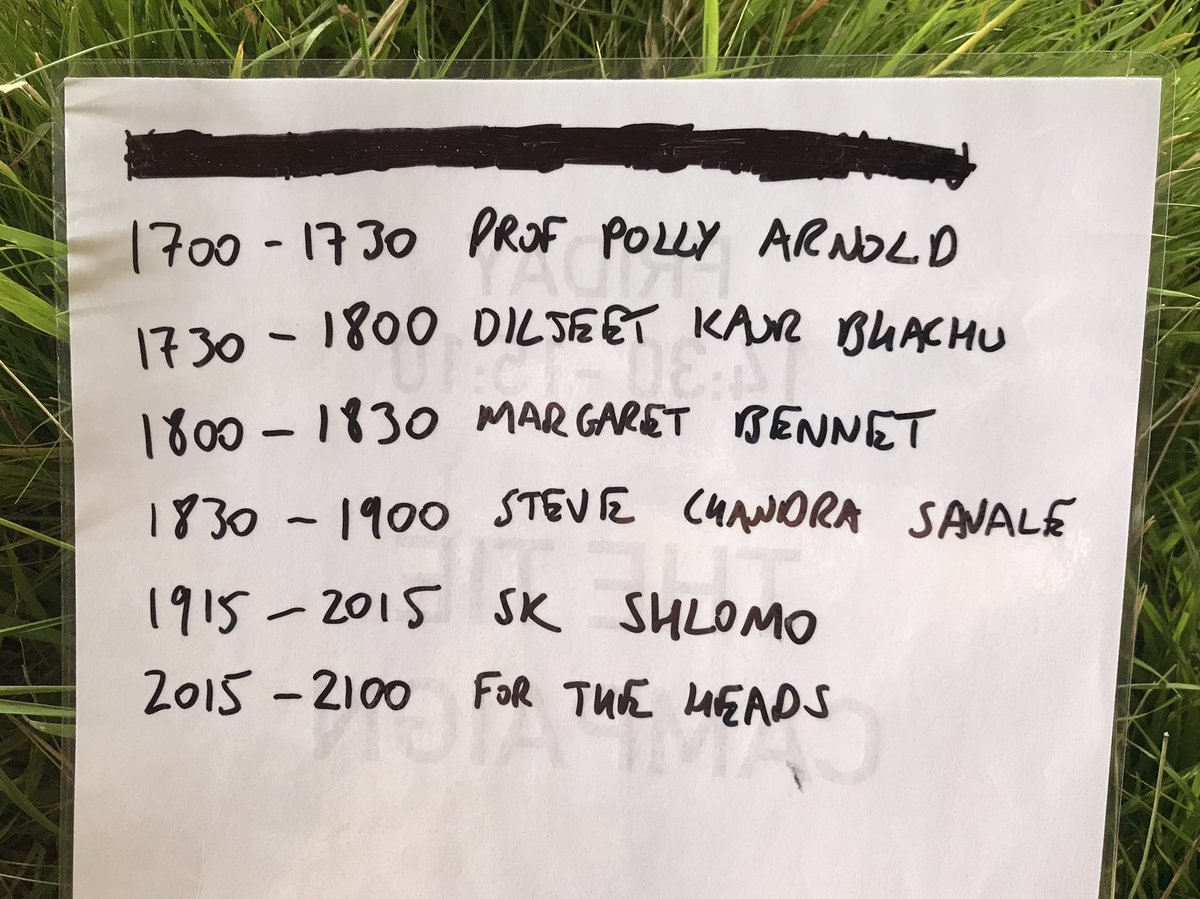 1700 - 1730 PROF POLLY ARNOLD
1730 - 1800 DILJEET KAUR BHACHU
1800 - 1830 MARGARET BENNET
1830 - 1900 STEVE CHANDRA SAVALE
1915 - 2015 SK SHLOMO
2015 - 2100 FOR THE HEADS
FRIDAY
14:30 - 15:10
THE TIE
CAMPAIGN